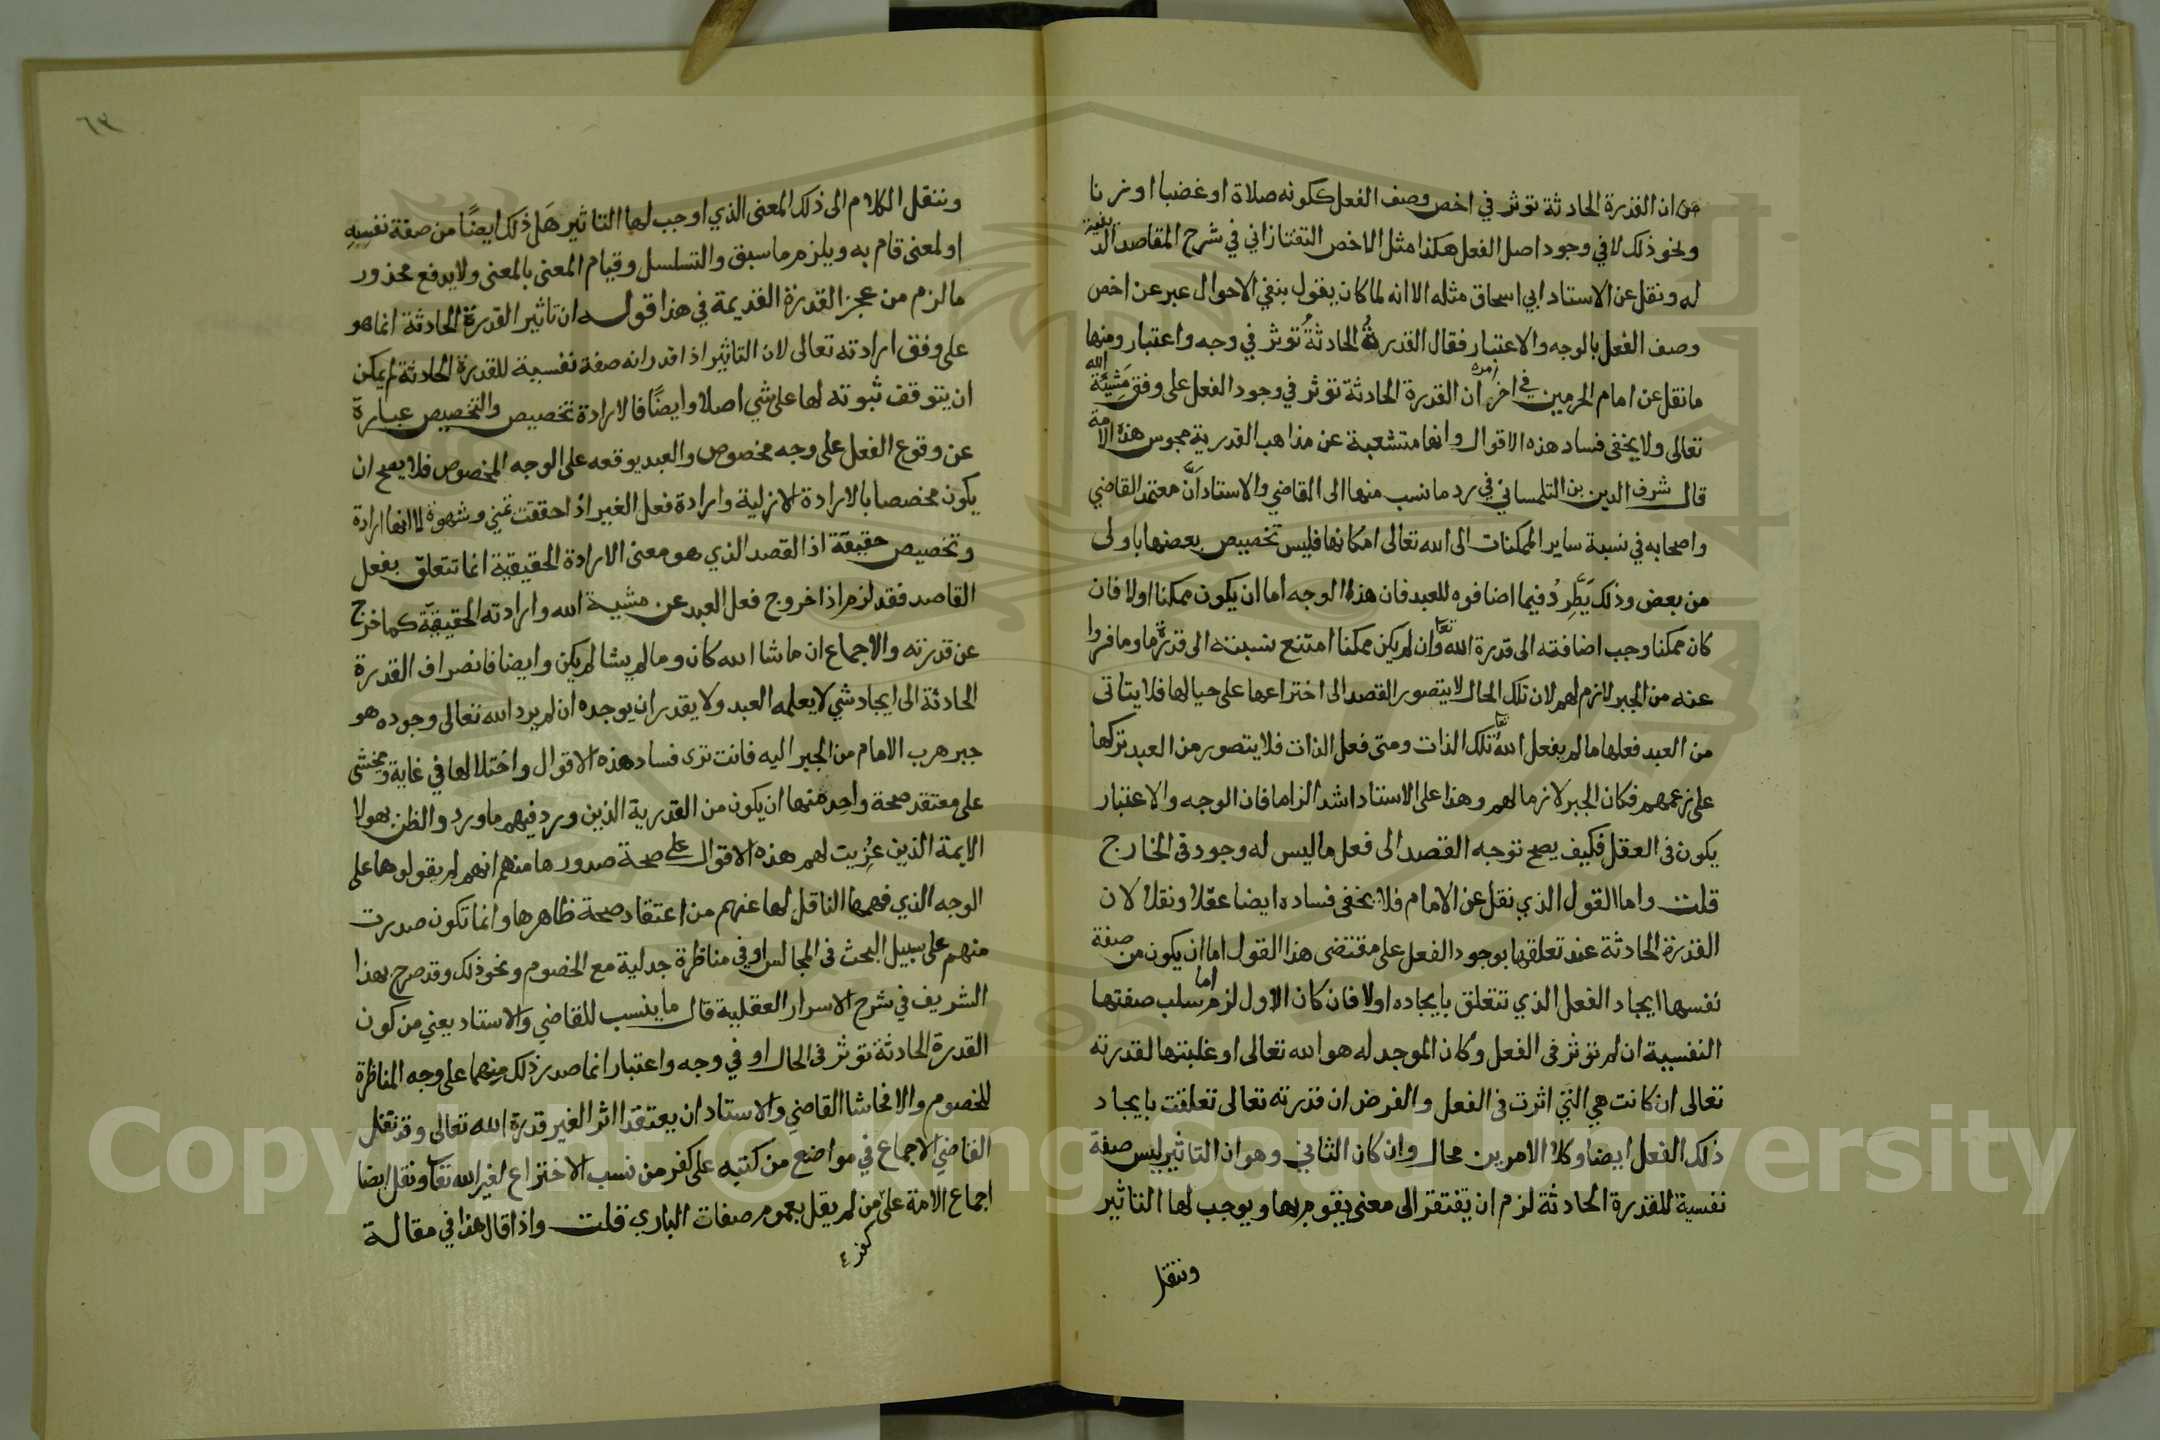 من ان القدرة الحادثة توثر في اخص وصف الفعل ككونه صلاة او غضبا او زنا
ونحو ذلك لا في وجود اصل الفعل هكذا مثل الاخص التفتازاني في شرح المقاصد الدينية
له ونقل عن الاستاد ابي اسحاق مثله الا انه لما كان يقول بنفي الاحوال عبر عن اخص
وصف الفعل بالوجه والاعتبار فقال القدرةُ الحادثةُ توثر في وجه واعتبار ومنها
ما نقل عن امام الحرمين في اخر امره ان القدرة الحادثة توثر في وجود الفعل على وفق مَشِيَّة الله
تعالى ولا يخفى فساد هذه الاقوال وانها متشعبة عن مذاهب القدرية مجوس هذه الامة
قال شرف الدين بن التلمساني في رد ما نسب منها الى القاضي والاستاد اَنَّ معتمد القاضي
واصحابه في نسبة ساير الممكنات الى الله تعالى امكانها فليس تخصيص بعضها باولى
من بعض وذلك يَطَّرِدُ فيما اضافوه للعبد فان هذا الوجه اما ان يكون ممكنا اولا فان
كان ممكنا وجب اضافته الى قدرة الله تعا وان لم يكن ممكنا امتنع نسبته الى قدرةٍ ما وما فروا
عنه من الجبر لازم لهم لان تلك الحال لا يتصور القصد الى اختراعها على حيالها فلا يتاتى
من العبد فعلها ما لم يفعل الله تعا تلك الذات ومتى فعل الذات فلا يتصور من العبد تركها
على زعمهم فكان الجبر لازما لهم وهذا على الاستاد اشد الزاما فان الوجه والاعتبار
يكون فى العقل فكيف يصح توجه القصد الى فعل ما ليس له وجود فى الخارج
قلت واما القول الذي نقل عن الامام فلا يخفى فساده ايضا عقلا ونقلا لان
القدرة الحادثة عند تعلقها بوجود الفعل على مقتضى هذا القول اما ان يكون من صفة
نفسها ايجاد الفعل الذي تتعلق بايجاده اولا فان كان الاول لزم اما سلب صفتها
النفسية ان لم توثر فى الفعل وكان الموجد له هو الله تعالى او غلبتها لقدرته
تعالى ان كانت هي التي اثرت فى الفعل والفرض ان قدرته تعالى تعلقت بايجاد
ذلك الفعل ايضا وكلا الامرين محال وان كان الثاني وهو ان التاثير ليس صفة
نفسية للقدرة الحادثة لزم ان تفتقر الى معنى يقوم بها ويوجب لها التاثير
وننقل
٦٣
وننقل الكلام الى ذلك المعنى الذي اوجب لها التاثير هَل ذلك ايضًا من صفة نفسِهِ
او لمعنى قام به ويلزم ما سبق والتسلسل وقيام المعنى بالمعنى ولا يدفع محذور
ما لزم من عجز القدرة القديمة في هذا قوله ان تاثير القدرة الحادثة انما هو
على وفق ارادته تعالى لان التاثير اذا قدر انه صفة نفسية للقدرة الحادثة لم يمكن
ان يتوقف ثبوته لها على شي اصلا وايضًا فالارادة تخصيص والتخصيص عبارة
عن وقوع الفعل على وجه مخصوص والعبد يوقعه على الوجه المخصوص فلا يصح ان
يكون مخصصا بالارادة الازلية وارادة فعل الغير اذا حققت تمني وشهوة لا انها ارادة
وتخصيص حقيقة اذ القصد الذي هو معنى الارادة الحقيقية انما تتعلق بفعل
القاصد فقد لزم اذا خروج فعل العبد عن مشية الله وارادته الحقيقية كما خرج
عن قدرته والاجماع ان ما شا الله كان وما لم يشا لم يكن وايضا فانصراف القدرة
الحادثة الى ايجاد شي لا يعلمه العبد ولا يقدر ان يوجده ان لم يرد الله تعالى وجوده هو
جبر هرب الامام من الجبر اليه فانت ترى فساد هذه الاقوال واختلالها في غاية ويخشى
على معتقد صحة واحد منها ان يكون من القدرية الذين ورد فيهم ما ورد والظن بهولا
الايمة الذين عُزِيت لهم هذه الاقوال على صحة صدورها منهم انهم لم يقولوها على
الوجه الذي فهمها الناقل لها عنهم من اعتقاد صحة ظاهرها وانما تكون صدرت
منهم على سبيل البحث فى المجالس او في مناظرة جدلية مع الخصوم ونحو ذلك وقد صرح بهذا
الشريف في شرح الاسرار العقلية قال ما ينسب للقاضي والاستاد يعني من كون
القدرة الحادثة توثر فى الحال او في وجه واعتبار انما صدر ذلك منهما على وجه المناظرة
للخصوم والا فحاشا القاضي والاستاد ان يعتقدا اثرا لغير قدرة الله تعالى وقد نقل
القاضي الاجماع في مواضع من كتبه على كفر من نسب الاختراع لغير الله تعا ونقل ايضا
اجماع الامة على كفر من لم يقل بعموم صفات الباري قلت واذا قال هذا في مقالة